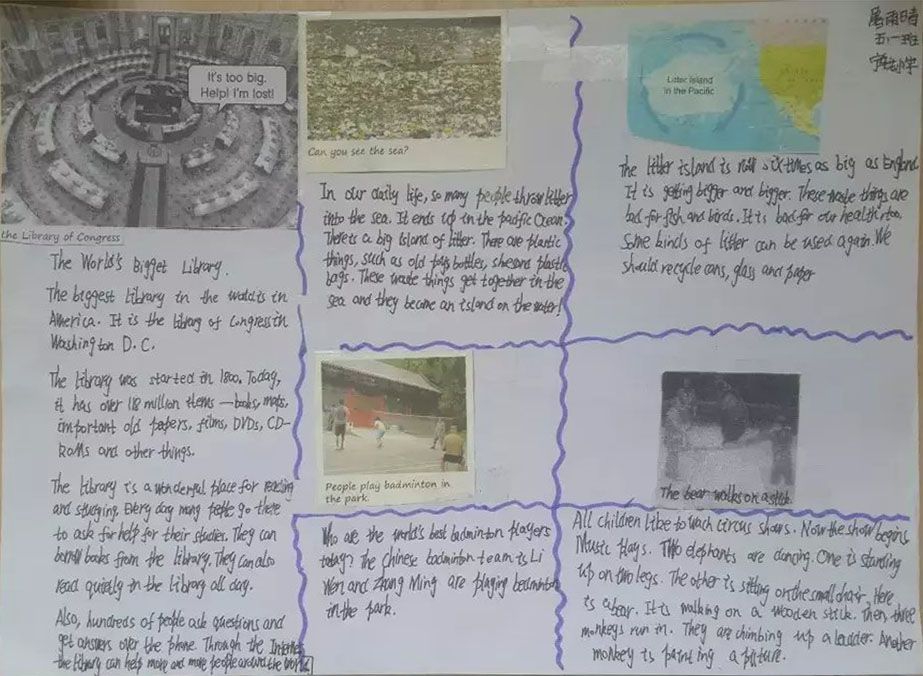 It's too big.
Help! I'm lost!
the Library of Congress
The World's Bigget Library.
The biggest Library in the world is in
America. It is the Library of Congress in
Washington D.C.
The Library was started in 1800. Today,
it has over 118 million items — books, maps,
important old papers, films, DVDs, CD-
ROMs and other things.
The Library is a wonderful place for reading
and studying. Every day many people go there
to ask for help for their studies. They can
borrow books from the library. They can also
read quietly in the library all day.
Also, hundreds of people ask questions and
get answers over the phone. Through the Internet
the library can help more and more people around the world.
Can you see the sea?
In our daily life, so many people throw litter
into the sea. It ends up in the pacific Ocean.
There is a big island of litter. There are plastic
things, such as old toys bottles, shoes and plastic
bags. These waste things get together in the
sea and they become an island on the water!
Litter Island
in the Pacific
The litter island is now six times as big as England
It is getting bigger and bigger. These waste things are
bad for fish and birds. It is bad for our health too.
Some kinds of litter can be used again We
should recycle cans, glass and paper
People play badminton in
the park.
Who are the world's best badminton players
today? The Chinese badminton team is Li
Wen and Zhang Ming are playing badminton
in the park.
The bear walks on a stick.
All children like to wach circus shows. Now the show begins,
Music plays. Two elephants are dancing. One is standing
up on two legs. The other is sitting on the small chair. Here
is a bear. It is walking on a wooden stick. Then three
monkeys run in. They are climbing up a ladder. Another
monkey is painting a picture.
雨时
五.一班